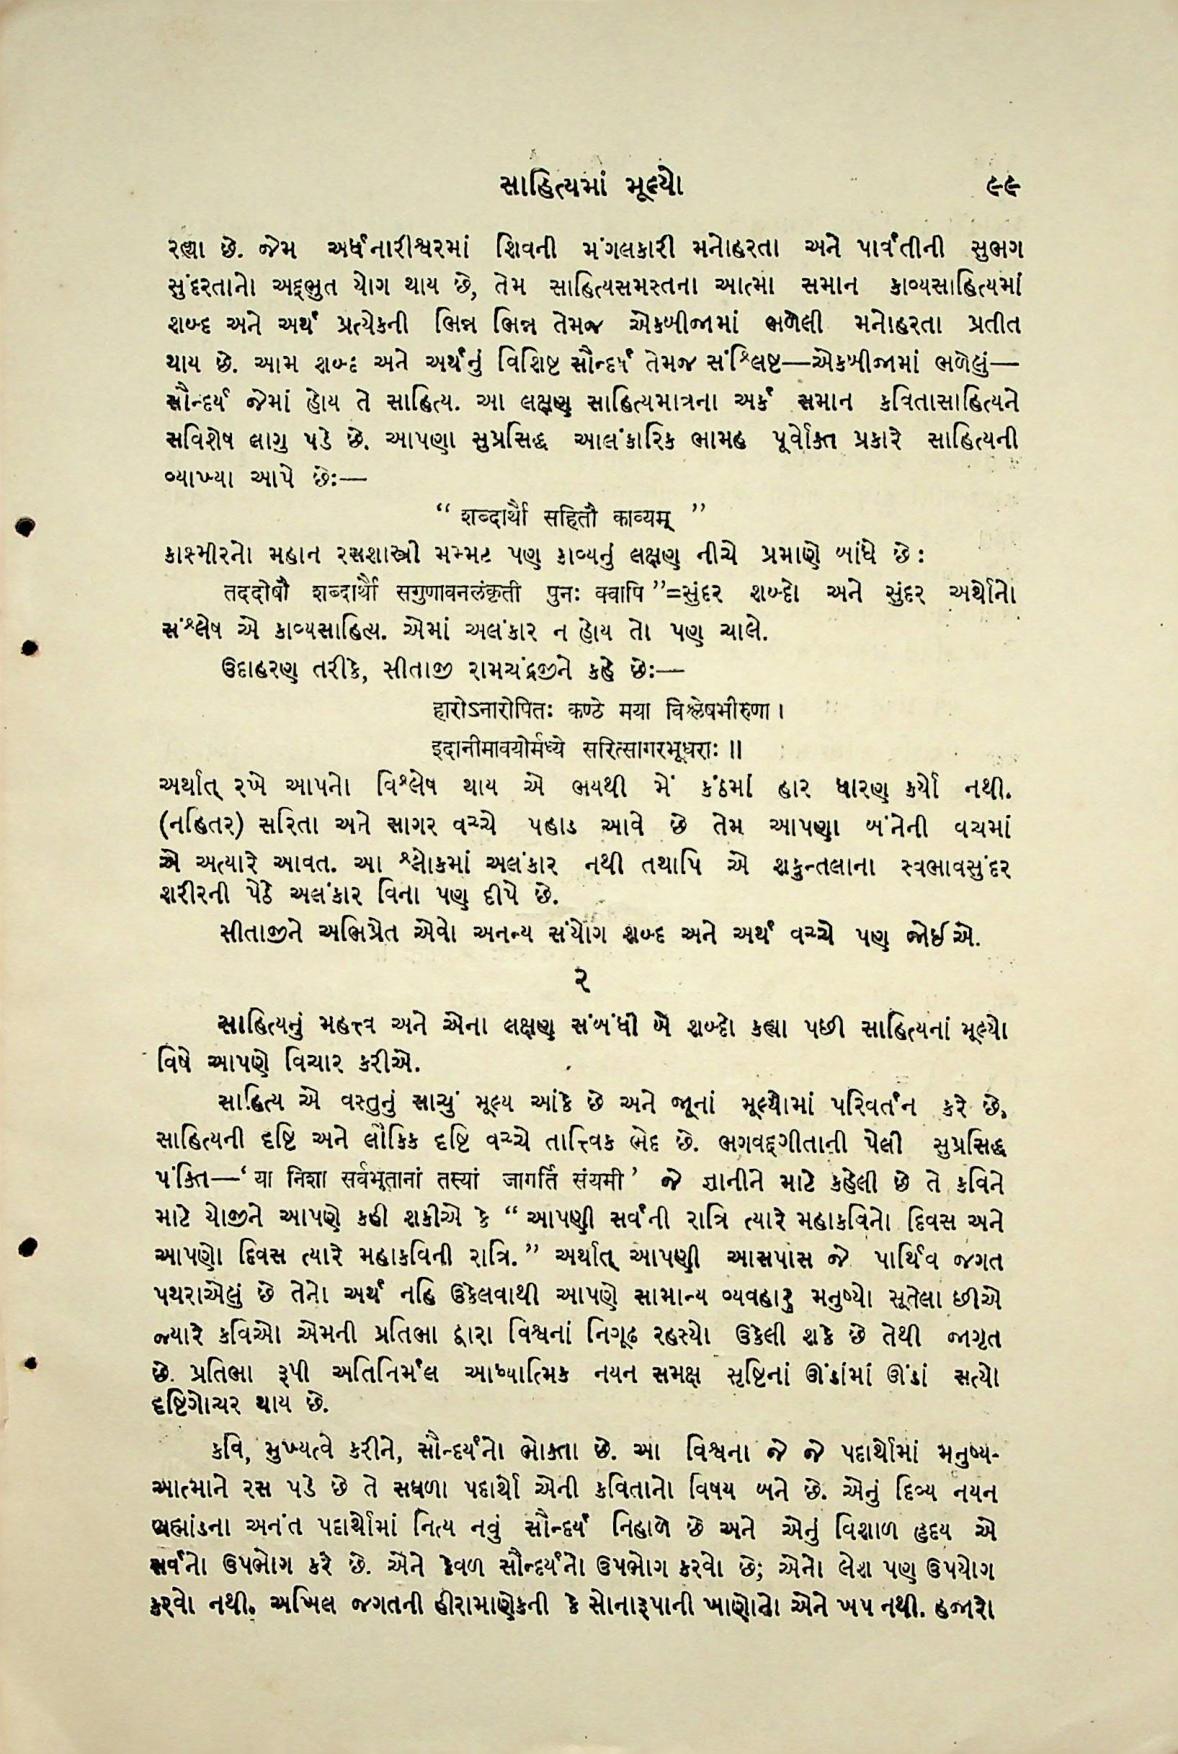 સાહિત્યમાં મૂલ્યો ૯૯
રહ્યા છે. જેમ અર્ધનારીશ્વરમાં શિવની મંગલકારી મનોહરતા અને પાર્વતીની સુભગ
સુંદરતાનો અદ્દભુત યોગ થાય છે, તેમ સાહિત્યસમસ્તના આત્મા સમાન કાવ્યસાહિત્યમાં
શબ્દ અને અર્થ પ્રત્યેકની ભિન્ન ભિન્ન તેમજ એકબીજામાં ભળેલી મનોહરતા પ્રતીત
થાય છે. આમ શબ્દ અને અર્થનું વિશિષ્ટ સૌન્દર્ય તેમજ સંશ્લિષ્ટ—એકબીજામાં ભળેલું—
સૌન્દર્ય જેમાં હોય તે સાહિત્ય. આ લક્ષણ સાહિત્યમાત્રના અર્ક સમાન કવિતાસાહિત્યને
સવિશેષ લાગુ પડે છે. આપણા સુપ્રસિદ્ધ આલંકારિક ભામહ પૂર્વોક્ત પ્રકારે સાહિત્યની
વ્યાખ્યા આપે છેઃ—
“ शब्दार्थौ सहितौ काव्यम् ”
કાશ્મીરનો મહાન રસશાસ્ત્રી મમ્મટ પણ કાવ્યનું લક્ષણ નીચે પ્રમાણે બાંધે છે :
तददोषौ शब्दार्थौ सगुणावनलंकृती पुनः क्वापि ”=સુંદર શબ્દો અને સુંદર અર્થોનો
સંશ્લેષ એ કાવ્યસાહિત્ય. એમાં અલંકાર ન હોય તો પણ ચાલે.
ઉદાહરણ તરીકે, સીતાજી રામચંદ્રજીને કહે છેઃ—
हारोऽनारोपितः कण्ठे मया विश्लेषभीरुणा ।
इदानीमावयोर्मध्ये सरित्सागरभूधराः ॥
અર્થાત્ રખે આપનો વિશ્લેષ થાય એ ભયથી મેં કંઠમાં હાર ધારણ કર્યો નથી.
(નહિતર) સરિતા અને સાગર વચ્ચે પહાડ આવે છે તેમ આપણા બંનેની વચમાં
એ અત્યારે આવત. આ શ્લોકમાં અલંકાર નથી તથાપિ એ શકુન્તલાના સ્વભાવસુંદર
શરીરની પેઠે અલંકાર વિના પણ દીપે છે.
સીતાજીને અભિપ્રેત એવો અનન્ય સંયોગ શબ્દ અને અર્થ વચ્ચે પણ જોઈએ.
૨
સાહિત્યનું મહત્ત્વ અને એના લક્ષણ સંબંધી બે શબ્દો કહ્યા પછી સાહિત્યનાં મૂલ્યો
વિષે આપણે વિચાર કરીએ.
સાહિત્ય એ વસ્તુનું સાચું મૂલ્ય આંકે છે અને જૂનાં મૂલ્યોમાં પરિવર્તન કરે છે.
સાહિત્યની દૃષ્ટિ અને લૌકિક દૃષ્ટિ વચ્ચે તાત્ત્વિક ભેદ છે. ભગવદ્દગીતાની પેલી સુપ્રસિદ્ધ
પંક્તિ—‘ या निशा सर्वभूतानां तस्यां जागर्ति संयमी ’ જે જ્ઞાનીને માટે કહેલી છે તે કવિને
માટે યોજીને આપણે કહી શકીએ કે “ આપણી સર્વની રાત્રિ ત્યારે મહાકવિનો દિવસ અને
આપણો દિવસ ત્યારે મહાકવિની રાત્રિ. ” અર્થાત્ આપણી આસપાસ જે પાર્થિવ જગત
પથરાએલું છે તેનો અર્થ નહિ ઉકેલવાથી આપણે સામાન્ય વ્યવહારુ મનુષ્યો સૂતેલા છીએ
જ્યારે કવિઓ એમની પ્રતિભા દ્વારા વિશ્વનાં નિગૂઢ રહસ્યો ઉકેલી શકે છે તેથી જાગૃત
છે. પ્રતિભા રૂપી અતિનિર્મલ આધ્યાત્મિક નયન સમક્ષ સૃષ્ટિનાં ઊંડાંમાં ઊંડાં સત્યો
દૃષ્ટિગોચર થાય છે.
કવિ, મુખ્યત્વે કરીને, સૌન્દર્યનો ભોક્તા છે. આ વિશ્વના જે જે પદાર્થોમાં મનુષ્ય-
આત્માને રસ પડે છે તે સઘળા પદાર્થો એની કવિતાનો વિષય બને છે. એનું દિવ્ય નયન
બ્રહ્માંડના અનંત પદાર્થોમાં નિત્ય નવું સૌન્દર્ય નિહાળે છે અને એનું વિશાળ હૃદય એ
સર્વનો ઉપભોગ કરે છે. એને કેવળ સૌન્દર્યનો ઉપભોગ કરવો છે; એનો લેશ પણ ઉપયોગ
કરવો નથી. અખિલ જગતની હીરામાણેકની કે સોનારૂપાની ખાણોનો એને ખપ નથી. હજારો